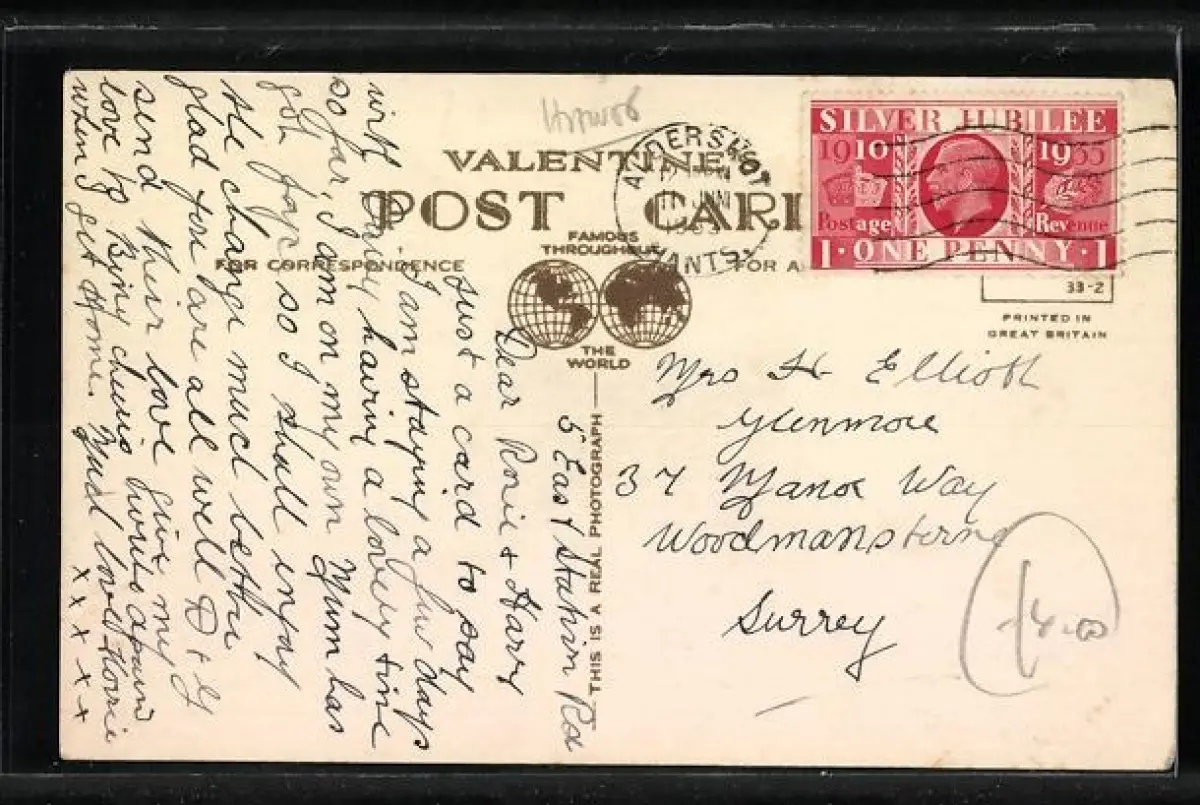 Hopwood
VALENTINE'S
POST CARD
FAMOUS
THROUGHOUT
THE
WORLD
FOR CORRESPONDENCE
FOR A
ALDERSHOT
JUN
HANTS.
SILVER JUBILEE
1910 1935
Postage Revenue
1 · ONE PENNY · 1
33-2
PRINTED IN
GREAT BRITAIN
THIS IS A REAL PHOTOGRAPH
Mrs H Elliott
Glenmore
37 Manor Way
Woodmansterne
Surrey
4.00
5 East Station Rd
Dear Rosie & Harry
Just a card to say
I am staying a few days
with Ducy having a lovely time
so far, I am on my own Mum has
got so I shall enjoy
the change much better
glad you are all well D & G
send their love give my
love to Biny cheerio hoping around
when I get Home. Mud love Horrie
x x x x x